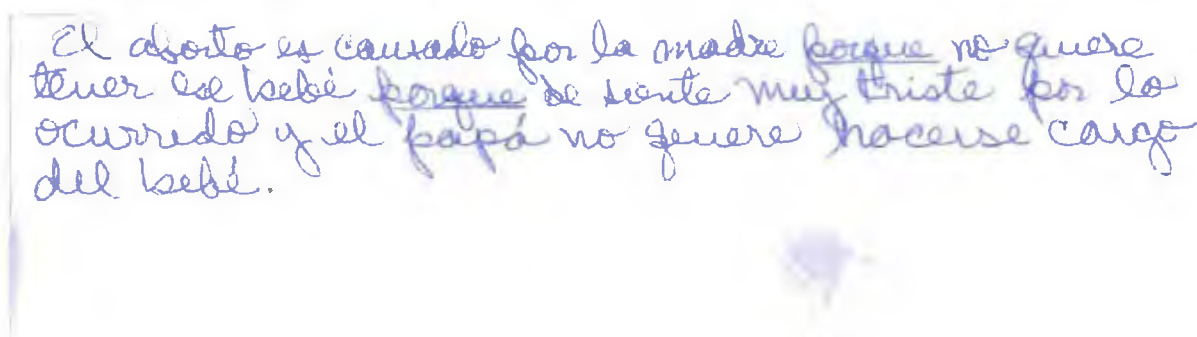 El aborto es causado por la madre porque no quiere
tener ese bebé porque se siente muy triste por lo
ocurrido y el papá no quiere hacerse cargo
del bebé.